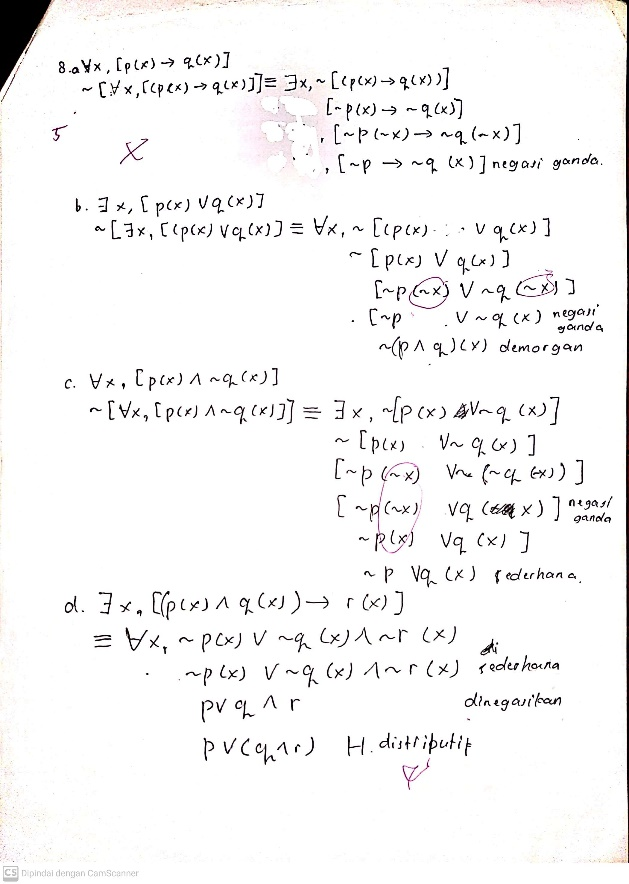 8.a ∀x, [p(x) → q(x)]
~ [∀x, [(p(x) → q(x)]] ≡ ∃x, ~ [(p(x) → q(x))]
[~p(x) → ~q(x)]
5
X
, [~p(~x) → ~q(~x)]
, [~p → ~q (x)] negasi ganda.
b. ∃x, [p(x) ∨ q(x)]
~ [∃x, [(p(x) ∨ q(x)] ≡ ∀x, ~ [(p(x) ∨ q(x)]
~ [p(x) ∨ q(x)]
[~p (~x) ∨ ~q (~x)]
[~p ∨ ~q (x) negasi ganda
~(p ∧ q)(x) demorgan
c. ∀x, [p(x) ∧ ~q(x)]
~ [∀x, [p(x) ∧ ~q(x)]] ≡ ∃x, ~[p(x) ∨ ~q (x)]
~ [p(x) ∨ ~ q (x)]
[~p (~x) ∨ ~ (~q (~x))]
[~p(~x) ∨ q (x)] negasi ganda
~p(x) ∨ q (x) ]
~ p ∨ q (x) sederhana.
d. ∃x, [(p(x) ∧ q(x)) → r(x)]
≡ ∀x, ~p(x) ∨ ~q (x) ∧ ~r (x)
~p(x) ∨ ~q (x) ∧ ~r (x) di sederhana
p ∨ q ∧ r dinegasikan
p ∨ (q ∧ r) H. distributif
CS Dipindai dengan CamScanner